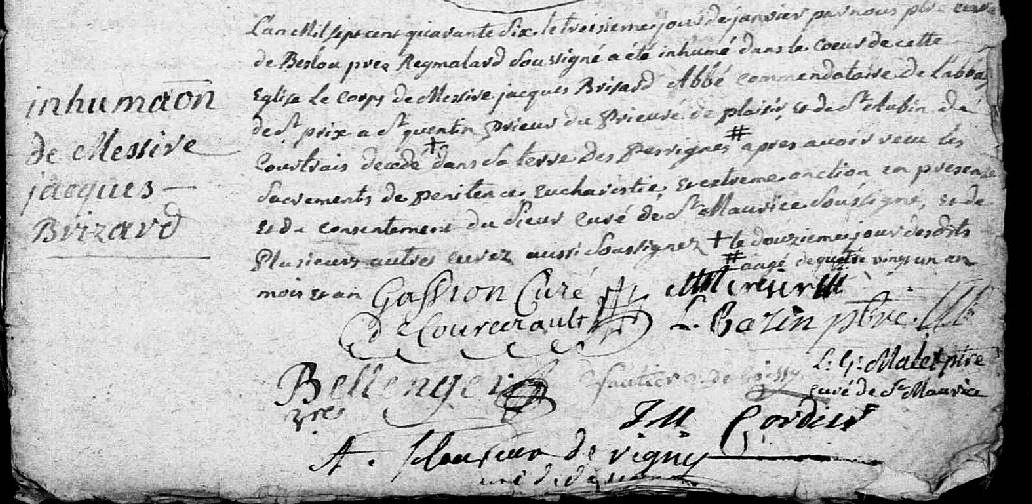 inhumaōn
de Messire
jacques
Brizard
L'an Mil sept cent quarante six le troisieme jour de janvier par nous ptre curé
de Beslou prez Regmalard Soussigné a été inhumé dans le coeur de cette
Eglise le corps de Messire jacques Brisard Abbé commendataire de Labba
de St prix a St quentin prieur du prieuré de plaisir, et de St Aubin de
Courtrais decedé + dans la terre des perrignes # apres avoir receu les
Sacrements de penitences Eucharistie, Et extreme onction en presence
Et du consentement du Sieur curé de St Maurice Soussigné, et de
plusieurs autres curez aussi Soussignez + le douzieme jour desdits
mois et an # aagé de quatre vingt un an
Gassion Curé
de Courcerault
L. Bazin ptre.
L. G. Malet ptre
curé de St Maurice
Bellenger
Cordier
de vigny